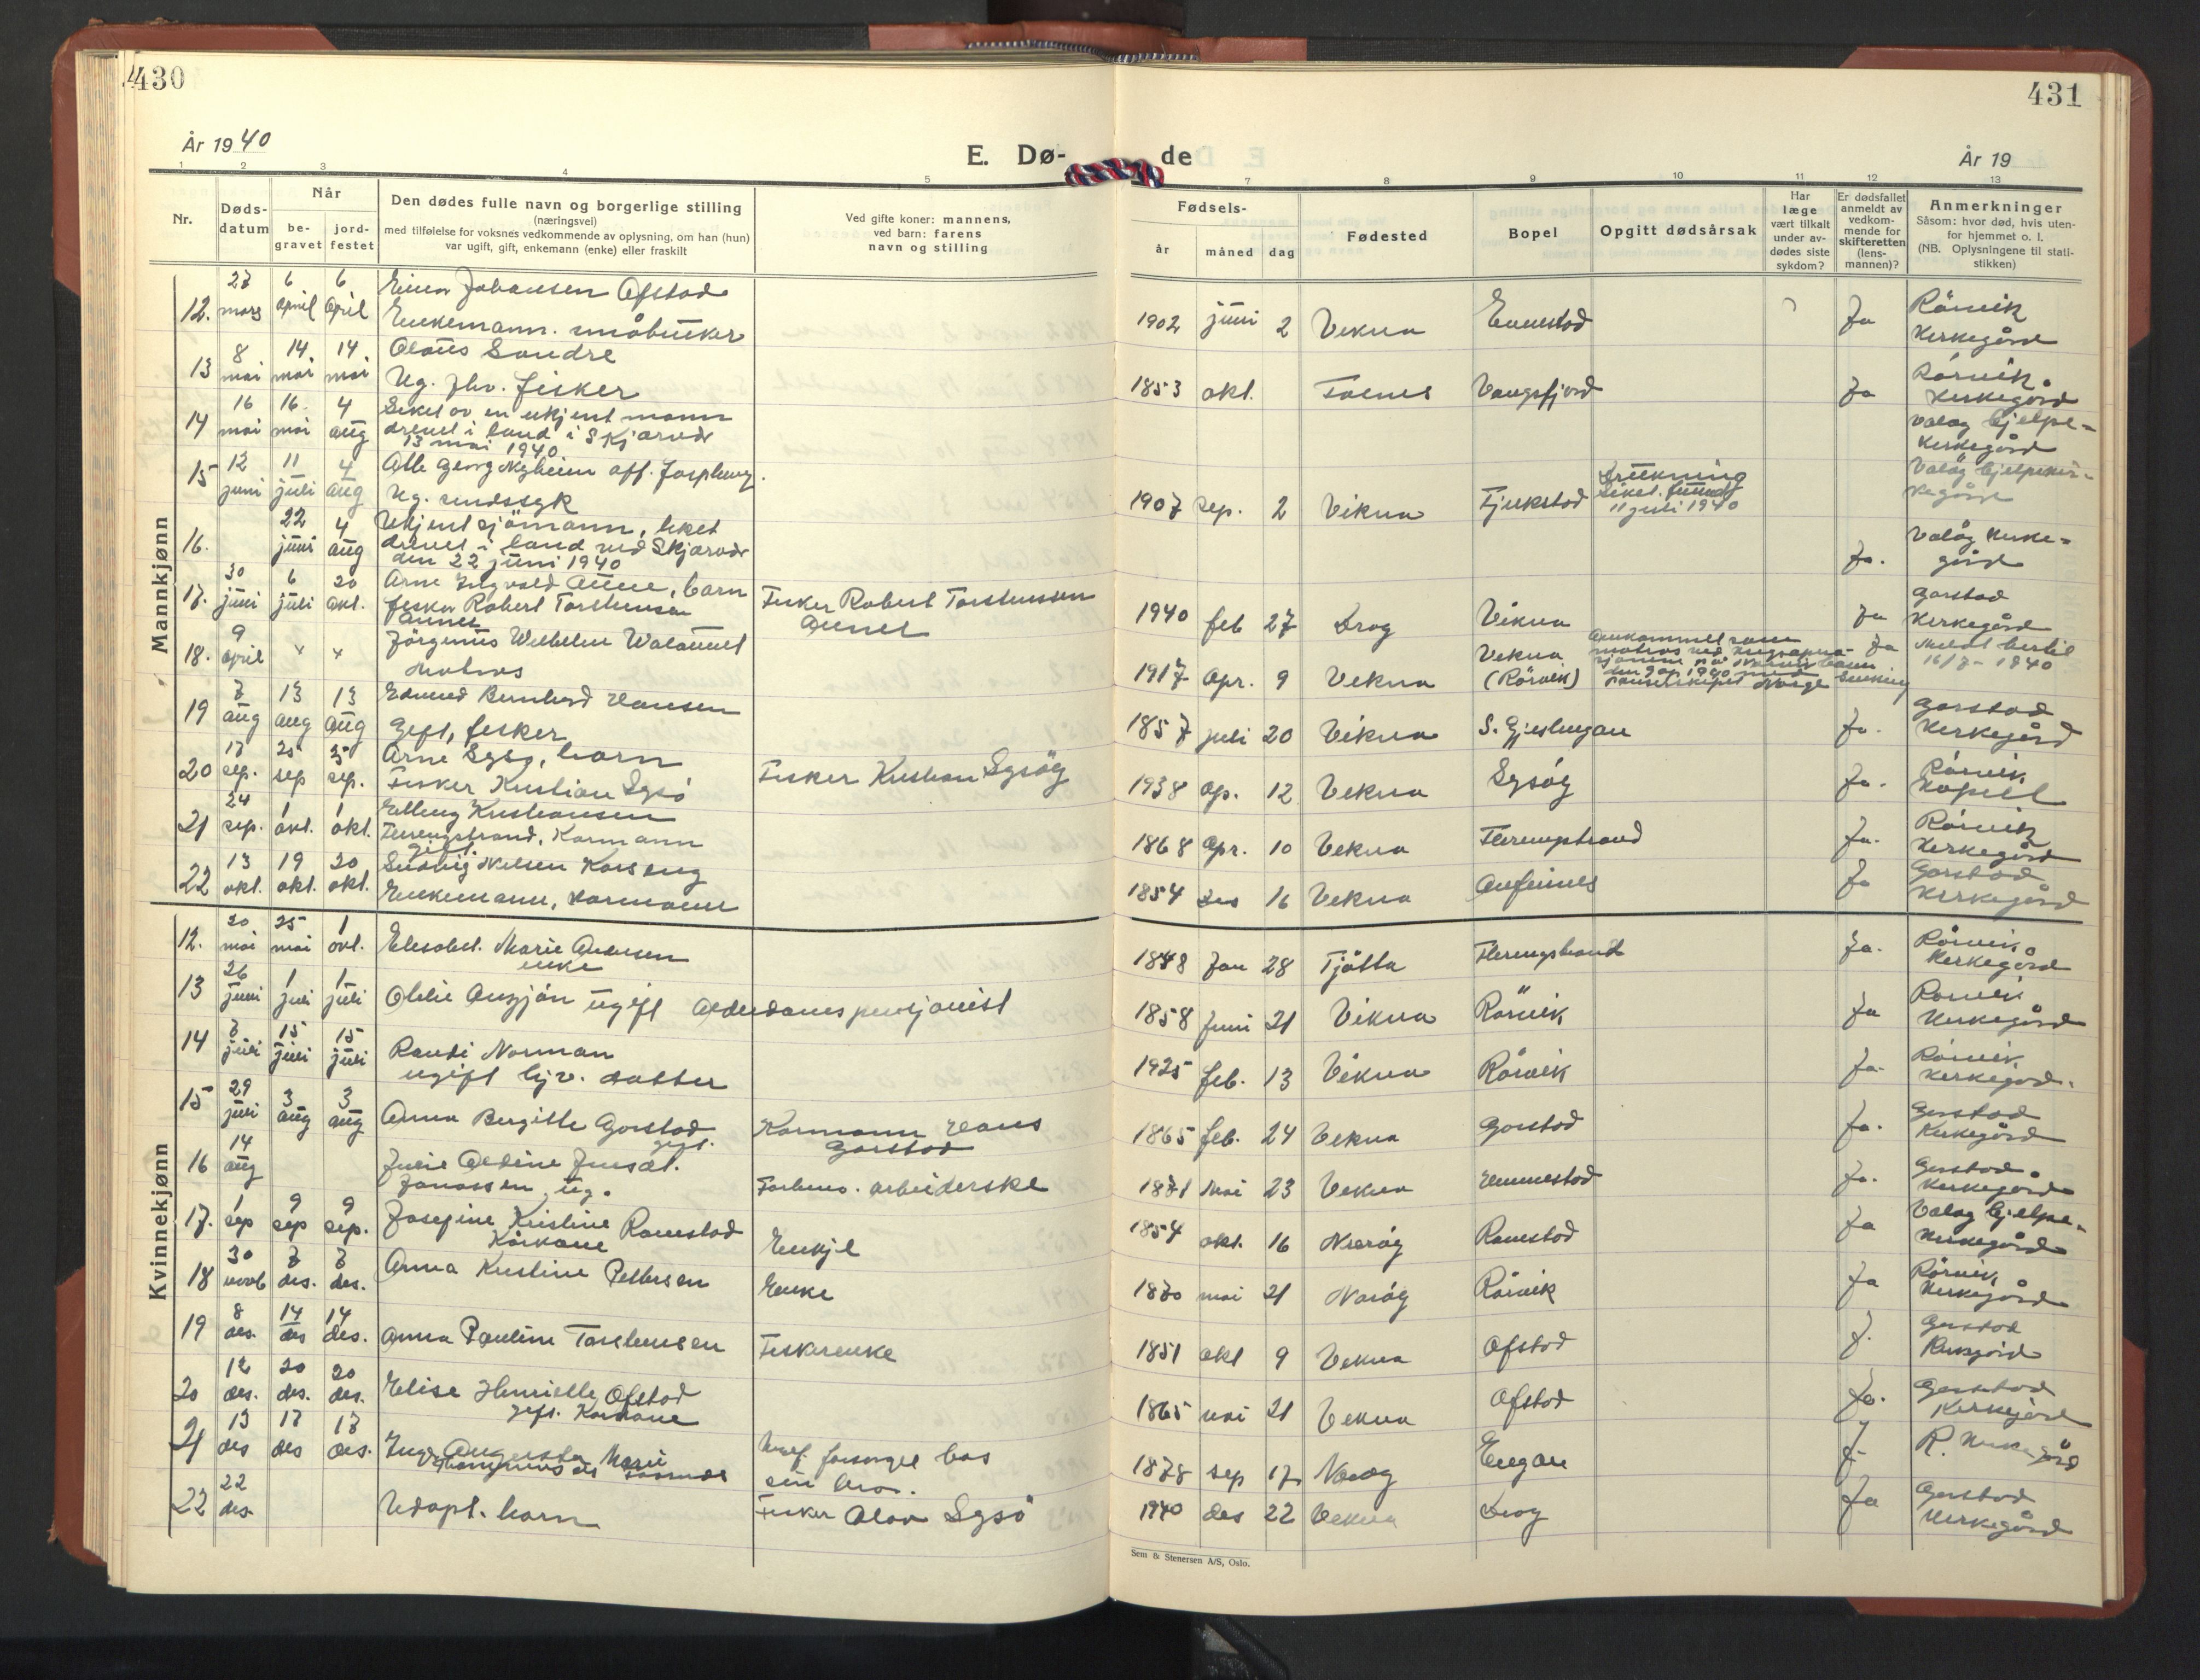 430
431
År 1940
E. Dø-
de
År 19
1 2 3 4 5 7 8 9 10 11 12 13
Nr.
Døds-
datum
Når
be-
gravet
jord-
festet
Den dødes fulle navn og borgerlige stilling
(næringsvei)
med tilføielse for voksnes vedkommende av oplysning, om han (hun)
var ugift, gift, enkemann (enke) eller fraskilt
Ved gifte koner: mannens,
ved barn: farens
navn og stilling
Fødsels-
år
måned
dag
Fødested
Bopel
Opgitt dødsårsak
Har
læge
vært tilkalt
under av-
dødes siste
sykdom?
Er dødsfallet
anmeldt av
vedkom-
mende for
skifteretten
(lens-
mannen)?
Anmerkninger
Såsom: hvor død, hvis uten-
for hjemmet o. l.
(NB. Oplysningene til stati-
stikken)
Mannkjønn
12. 27 mars 6 april 6 april
Einar Johansen Ofstad
Enkemann. småbruker
1902 juni 2 Vikna Evenstad Ja
Rörvik
Kirkegård
13 8 mai 14 mai 14 mai
Olaus Sandre
Ug. fisker
1853 okt. Foldnes Vangsfjord Ja
Rörvik
Kirkegård
14 16 mai 16 mai 4 aug
Liket av en ukjent mann
drevet i land i Skjærvær
13 mai 1940
Valøg hjelpe-
kirkegård
15 12 juni 11 juli 4 aug
Atle Georg Nyheim
Ug. sindssyk
1907 sep. 2 Vikna
Drukning
Liket funnet
11 juli 1940
Valøg hjelpekir-
kegård
16. 22 juni 4 aug
Ukjent sjömann, liket
drevet i land ved Skjærvær
den 22 juni 1940
Ja.
Valøg kirke-
gård
17. 30 juni 6 juli 20 okt.
Arne Ingvald Aune, barn
fisker Robert Torstensen
Aunet
Fisker Robert Torstensen
Aunet
1940 feb 27 Drag Vikna Ja
Garstad
Kirkegård
18. 9 april " "
Jörginus Wilhelm Walaunet
Matros
1917 Apr. 9 Vikna
Vikna
(Rörvik)
Omkommet som
matros ved
den 9 ap. 1940 med
panserskipet Norge senkning
Ja
Meldt hertil
16/7 - 1940
19 7 aug 13 aug 13 aug
Edvard Bernhard Hansen
Gift, fisker
1857 juli 20 Vikna S. Gjeslingan Ja.
Garstad
Kirkegård
20 17 sep. 25 sep 25 sep.
Arne Sysö, barn
Fisker Kristian Sysö
Fisker Kristian Sysöy
1938 ap. 12 Vikna Sysöy Ja.
Rörvik
Kapell
21 24 sep. 1 okt. 1 okt.
Elling Kristiansen
Flerengstrand, Kårmann
gift.
1868 Apr. 10 Vikna Flerengstrand Ja.
Rörvik
Kirkegård
22 13 okt. 19 okt. 20 okt.
Ludvig Nilsen Korseng
Enkemann, kårmann
1854 des 16 Vikna Anfinnes Ja
Garstad
Kirkegård
Kvinnekjønn
12. 20 mai 25 mai 1 okt.
Elisabet Marie Andersen
enke
1848 Jan 28 Tjötta Flerengstrand Ja.
Rörvik
Kirkegård
13 26 juni 1 juli 1 juli
Olelie Anzjön ugift Alderdomspensjonist
1858 Juni 21 Vikna Rörvik Ja
Rörvik
Kirkegård
14 7 juli 15 juli 15 juli
Randi Norman
ugift hjv. datter
1925 feb. 13 Vikna Rörvik Ja.
Rörvik
Kirkegård.
15 29 juli 3 aug 3 aug
Anna Bergitte Garstad
gift.
Kårmann Hans
Garstad
1865 feb. 24 Vikna Garstad Ja.
Garstad
Kirkegård
16 14 aug
Julie Aldine
Jonassen, ug.
Forhenv. arbeiderske
1871 Mai 23 Vikna Emmestad Ja.
Garstad
Kirkegård
17. 1 sep 9 sep 9 sep.
Josefine Kristine Ramstad
Kårkone
Enkje
1854 okt. 16 Nærøy Ramstad Ja
Valøg hjelpe-
kirkegård
18 30 novb 7 des. 7 des.
Anna Kristine Pettersen
Enke
1870 mai 21 Nærøy Rörvik Ja
Rörvik
Kirkegård
19 8 des. 14 des 14 des.
Anna Pauline Torstensen
Fiskerenke
1851 okt 9 Vikna Ofstad J.
Garstad
Kirkegård
20 12 des. 20 des. 20 des.
Elise Henriette Ofstad
gift. Kårkone
1865 mai 21 Vikna Ofstad Ja.
Garstad
Kirkegård
21 13 des 17 des 17 des.
Inga Augusta Marie
Ugift forsorget hos
sin bror.
1878 sep 17 Nærøy Engan J-
R. Kirkegård
22 22 des.
Udöpt. barn
Fisker Olav Sysö
1940 des 22 Vikna Drag Ja
Garstad
Kirkegård
Sem & Stenersen A/S, Oslo.